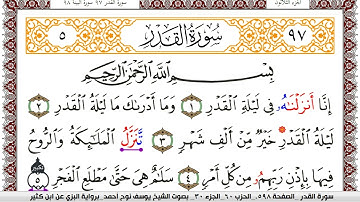 الجزء الثلاثون سورة القدر ٩٧ سورة البينة ٩٨
٩٧ سُورَةُ القَدْرِ ٥
بِسْمِ اللَّهِ الرَّحْمَٰنِ الرَّحِيمِ
إِنَّا أَنزَلْنَٰهُۥ فِي لَيْلَةِ الْقَدْرِ ١ وَمَا أَدْرَىٰكَ مَا لَيْلَةُ الْقَدْرِ ٢
لَيْلَةُ الْقَدْرِ خَيْرٌ مِّنْ أَلْفِ شَهْرٍ ٣ تَّنَزَّلُ الْمَلَٰٓئِكَةُ وَالرُّوحُ
فِيهَا بِإِذْنِ رَبِّهِمُۥ مِن كُلِّ أَمْرٍ ٤ سَلَٰمٌ هِيَ حَتَّىٰ مَطْلَعِ الْفَجْرِ ٥
سورة القدر الصفحة ٥٩٨ الحزب ٦٠ الجزء ٣٠ بصوت الشيخ يوسف نوح احمد برواية البزي عن ابن كثير